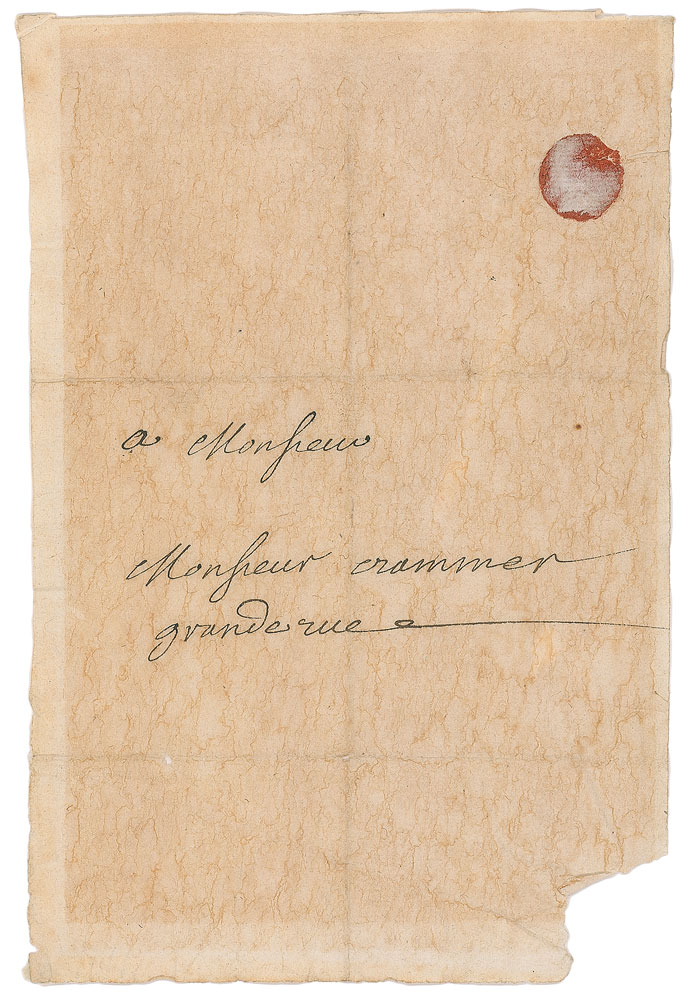 a Monsieur
Monsieur crammer
grande rue